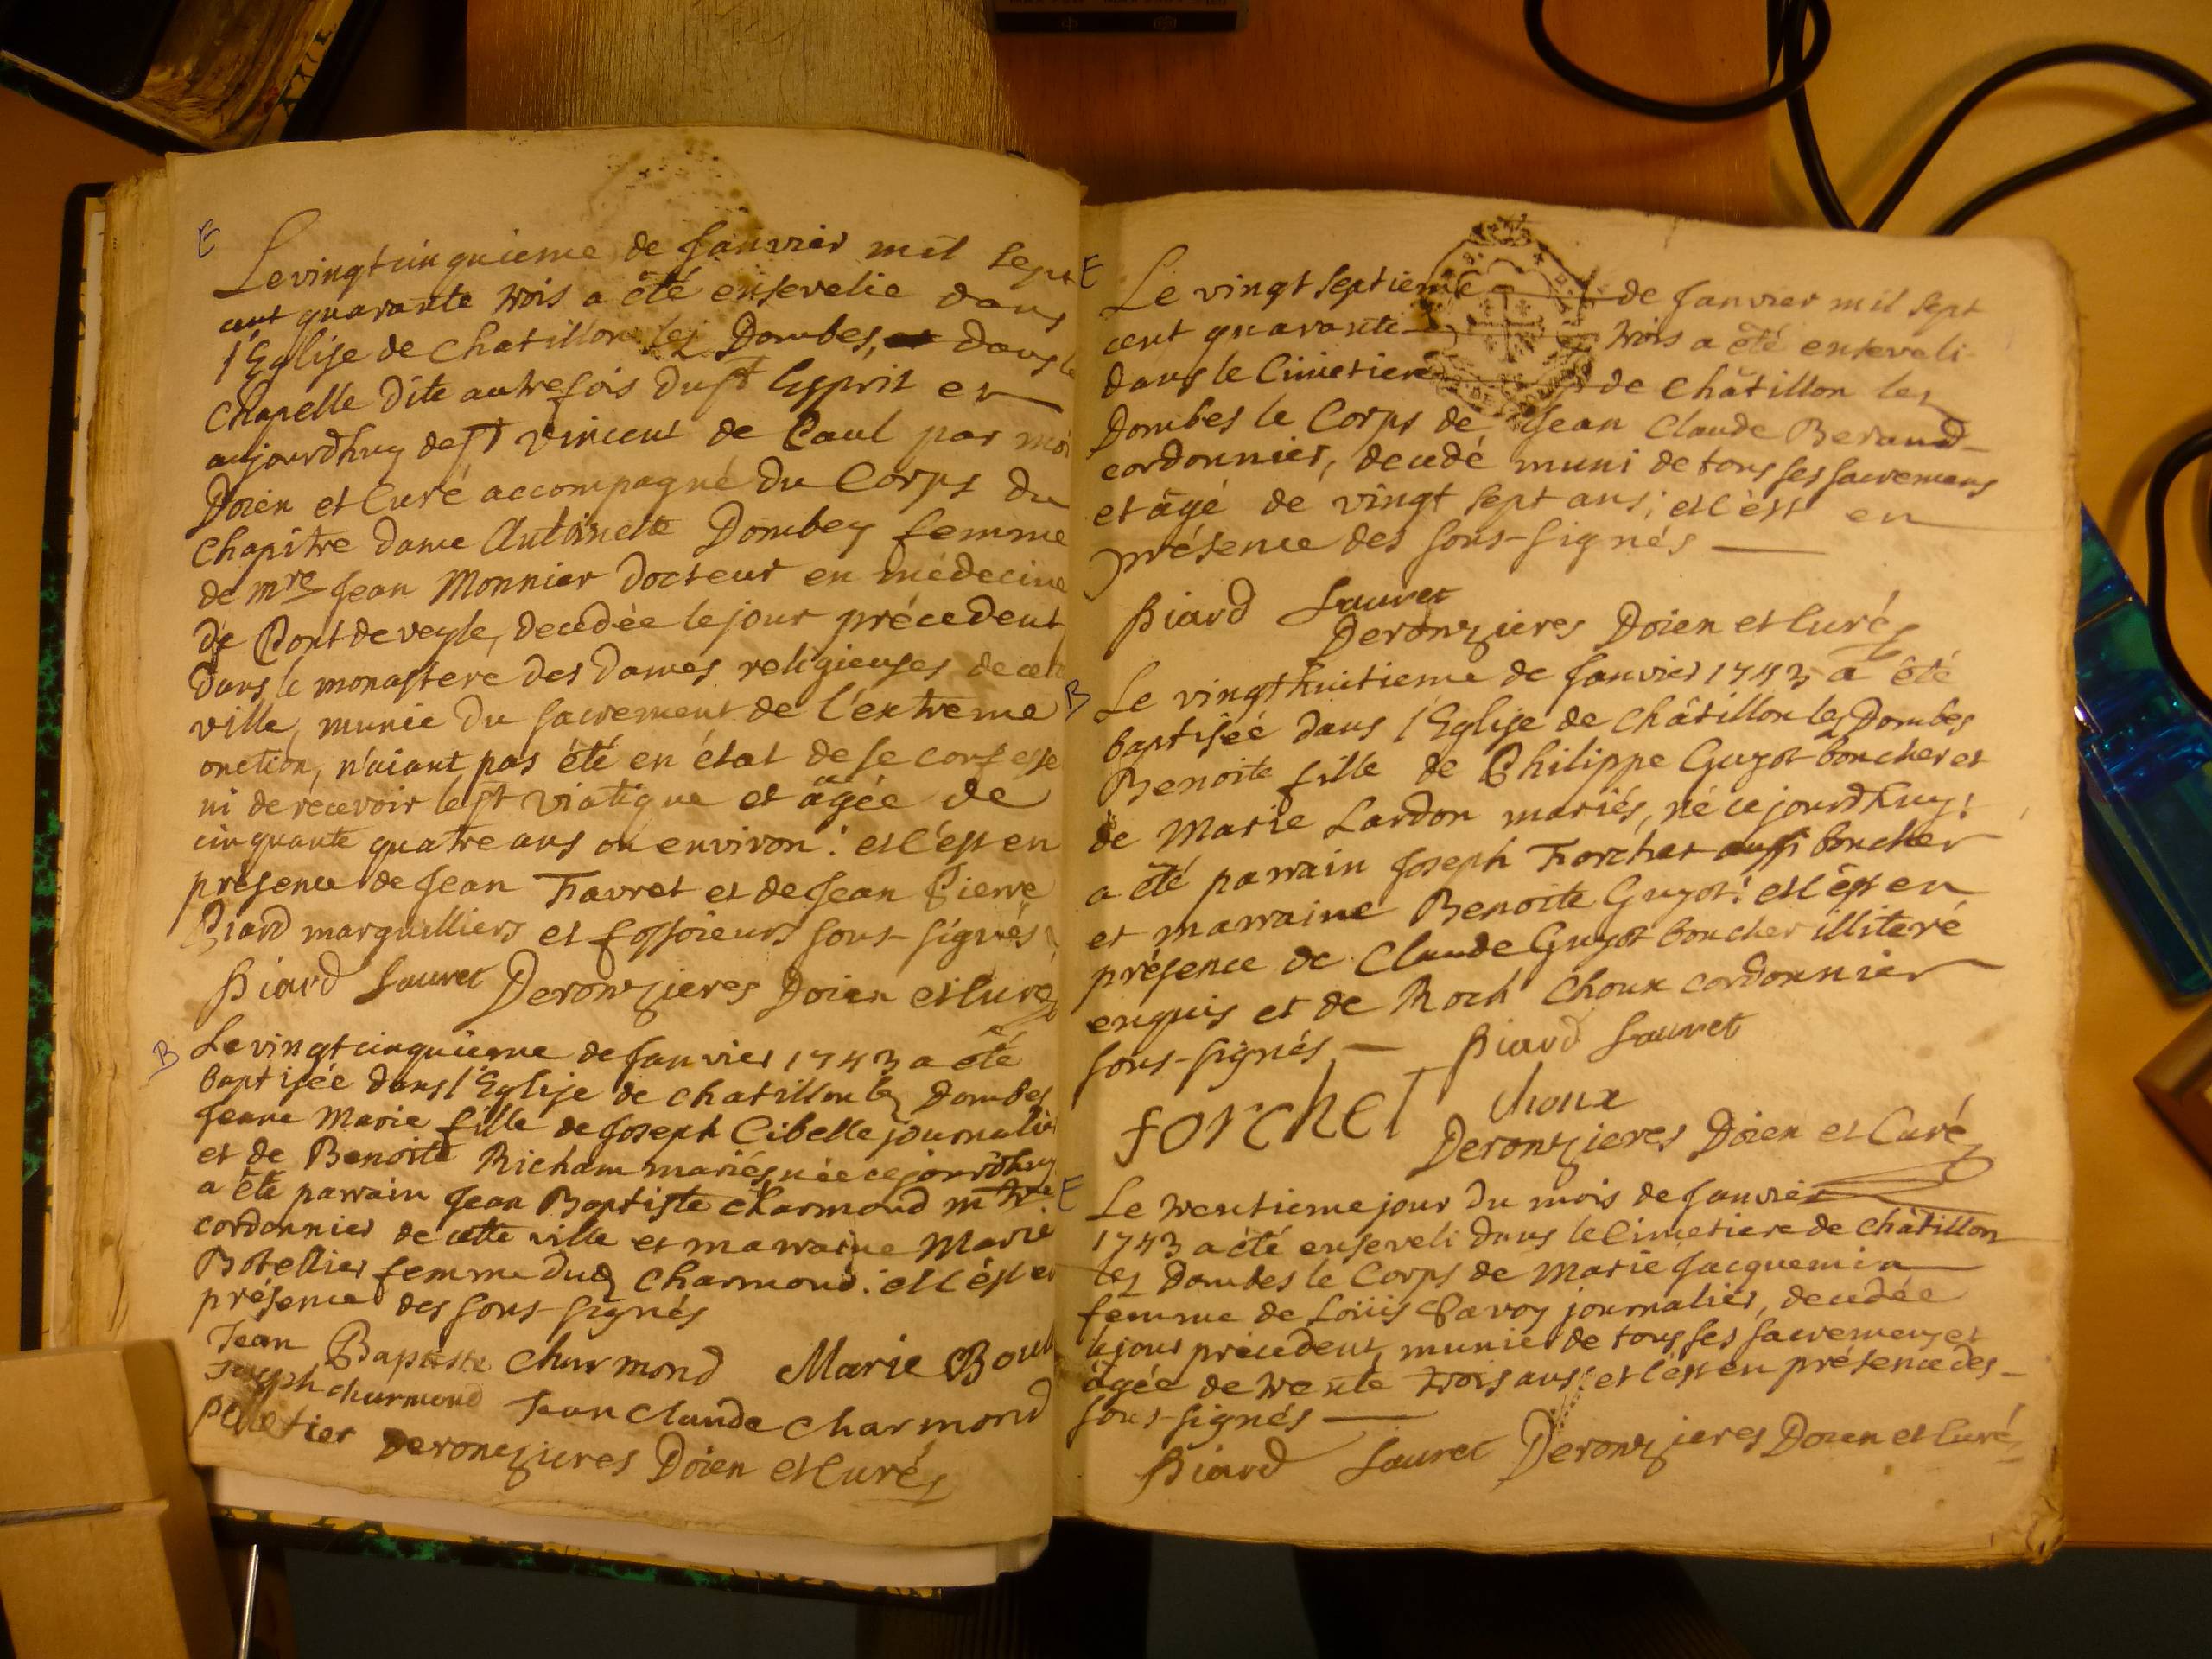 E
Le vingt cinquieme de Janvier mil sept
cent quarante trois a êté ensevelie dans
l'Eglise de chatillon lez Dombes, dans la
chapelle dite autrefois du st Esprit et
aujourdhuy de st vincent de Paul par moi
Doien et Curé accompagné du Corps du
chapitre dame Antoinette Dombey femme
de mre Jean Monnier docteur en médecine
de Pont de veyle, decedée le jour précedent
dans le monastere des dames religieuses de cette
ville, munie du sacrement de l'extreme
onction, n'aiant pas été en état de se confesse
ni de récevoir le st viatique et âgée de
cinquante quatre ans ou environ : et c'est en
présence de Jean Favret et de Jean Pierre
Biard marguilliers et fossoieurs sous-signés
Biard Favret Deronzieres Doien et Curé
B
Le vingt cinquieme de Janvier 1743 a été
baptisée dans l'Eglise de chatillon lez Dombes
Jeane Marie fille de Joseph Cibelle journalier
et de Benoite Richam mariés, née ce jourdhuy
a êté parrain Jean Baptiste charmond mtre
cordonnier de cette ville et marraine Marie
Botellier femme dud charmond : et c'est en
présence des sous-signés
Jean Baptiste charmond Marie Bout
Joseph charmond Jean claude charmond
pelletier Deronzieres Doien et Curé
E
Le vingt septieme de Janvier mil sept
cent quarante trois a êté enseveli
dans le Cimetiere de châtillon lez
Dombes le Corps de Jean Claude Beraud
cordonnier, decedé muni de tous ses sacremens
et âgé de vingt sept ans ; et c'est en
présence des sous-signés
Biard Favret
Deronzieres Doien et Curé
B
Le vingt huitieme de Janvier 1743 a êté
baptisée dans l'Eglise de châtillon lez Dombes
Benoite fille de Philippe Guyot boucher et
de Marie Lardon mariés, né ce jourdhuy ;
a êté parrain Joseph Forchet aussi boucher
et marraine Benoite Guyot : et c'est en
présence de Claude Guyot boucher illiteré
enquis et de Roch Choux cordonnier
sous-signés Biard Favret
forchet choux
Deronzieres Doien et Curé
E
Le trentieme jour du mois de Janvier
1743 a êté enseveli dans le Cimetiere de châtillon
lez Dombes le Corps de Marie Jacquemin
femme de Loüis Savoy journalier, decedée
le jour précedent, munie de tous ses sacremens et
âgée de trente trois ans : et c'est en présence des
sous-signés
Biard Favret Deronzieres Doien et Curé